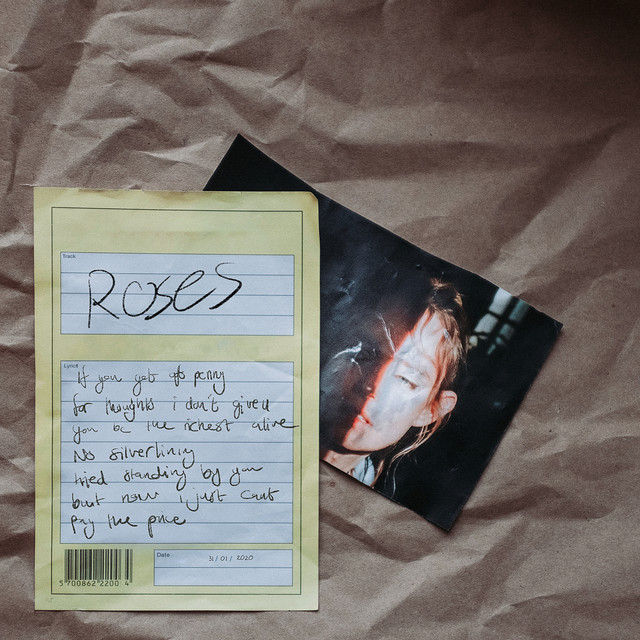 Track
Roses
Lyrics
If you got a penny
for thoughts i don't give u
you be the richest alive
No silverlining
tried standing by you
but now i just cant
pay the price
5 700862 2200 4
Date
31/01/2020